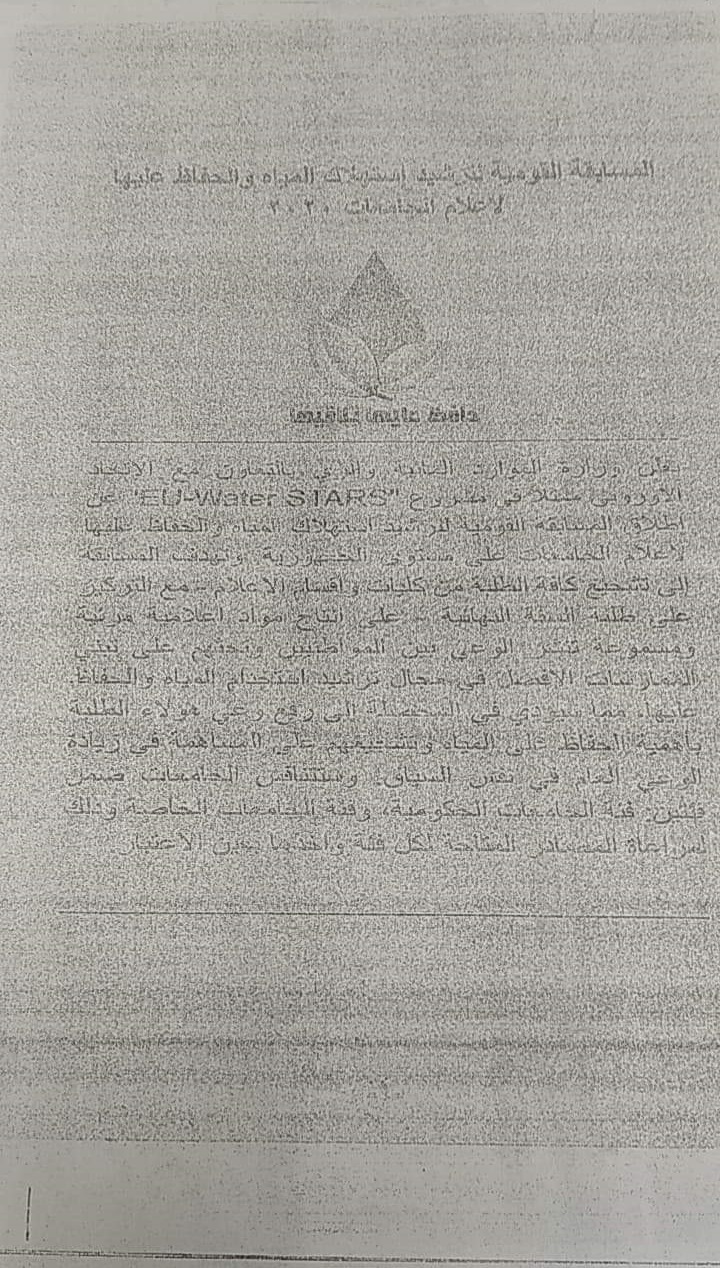 المسابقة القومية لترشيد استهلاك المياه والحفاظ عليها
لاعلام الجامعات ٢٠٢٠
حافظ عليها تلاقيها
تعلن وزارة الموارد المائية والري بالتعاون مع الاتحاد
الاوروبي ممثلا في مشروع "EU-Water STARS" عن
اطلاق المسابقة القومية لترشيد استهلاك المياه والحفاظ عليها
لاعلام الجامعات على مستوى الجمهورية وتهدف المسابقة
إلى تشجيع كافة الطلبة من كليات واقسام الاعلام - مع التركيز
على طلبة السنة النهائية - على انتاج مواد اعلامية مرئية
ومسموعة تنشر الوعي بين المواطنين وتحثهم على تبني
الممارسات الافضل في مجال ترشيد استخدام المياه والحفاظ
عليها، مما سيؤدي في المحصلة الى رفع وعي هؤلاء الطلبة
بأهمية الحفاظ على المياه وتشجيعهم على المساهمة في زيادة
الوعي العام في نفس السياق. وستتنافس الجامعات ضمن
فئتين: فئة الجامعات الحكومية، وفئة الجامعات الخاصة وذلك
لمراعاة المصادر المتاحة لكل فئة واخذها بعين الاعتبار.